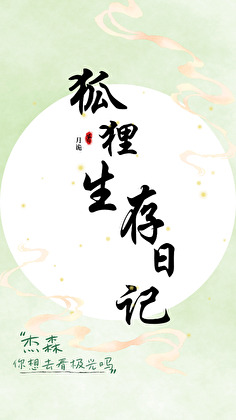 狐狸生存日记
月诡
著
"杰森
你想去看极光吗"